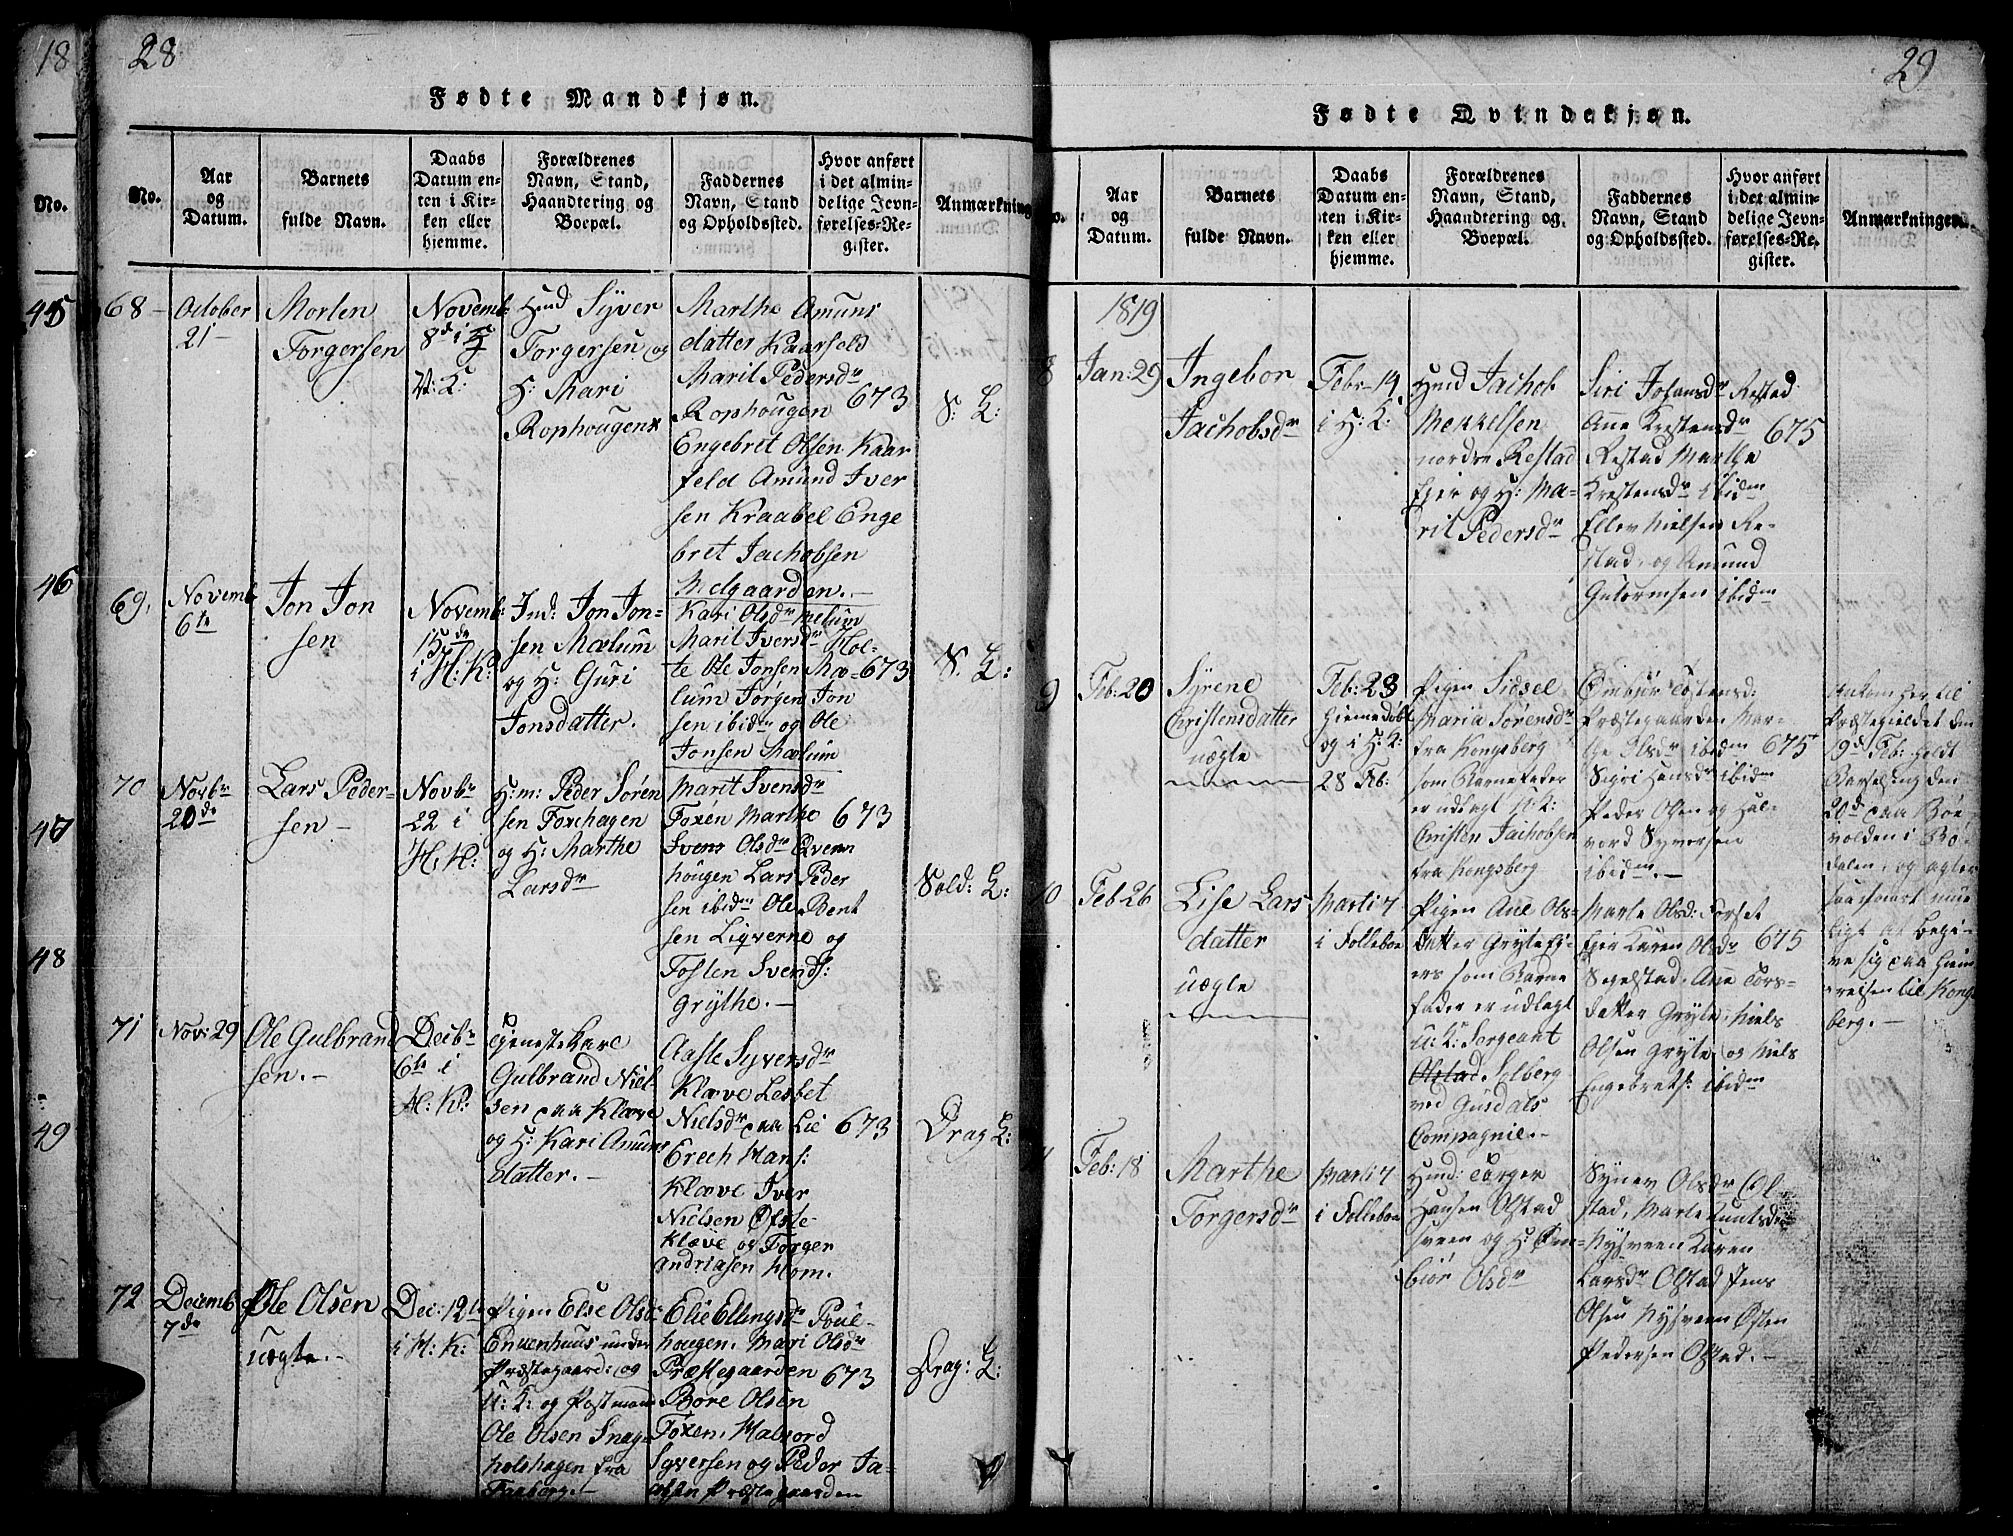 18
28
Fødte Mandkjøn.
No.
No.
Aar
og
Datum.
Barnets
fulde Navn.
Daabs
Datum en-
ten i Kir-
ken eller
hjemme.
Forældrenes
Navn, Stand,
Haandtering og
Boepæl.
Faddernes
Navn, Stand
og Opholdssted.
Hvor anført
i det almin-
delige Jevn-
førelses-Re-
gister.
Anmærkning
45
46
47
48
49
68
October
21
Morten
Torgersen
Novemb
8de i
V: K:
Hmd Syver
Torgersen og
H: Mari
Rophougen
Marthe Amuns
datter Kaarfeld
Marit Pedersdr
Rophougen
Engebret Olsen Kaar
feld Amund Iver
sen Kraabel Enge
bret Jachobsen
Melgaarden.
673
S: L:
69.
Novemb
6te
Jon Jon
sen
Novemb:
15de
i H: K:
Ind: Jon Jon=
sen Mælum
og H: Guri
Jonsdatter.
Kari Olsdr Melum
Marit Iversdr Hol-
te Ole Jonsen Mæ=
lum Jørgen Jon
sen ibidm og Ole
Jonsen Mælum
673
S. L:
70
Novbr
20de
Lars Peder-
sen
Novbr
22 i
H: K:
H:m: Peder Sören
sen Foxehagen
og H: Marthe
Larsdr
Marit Svensdr
Foxen Marthe
Svens Olsdr Qvenn
hougen Lars Peder
sen ibidm Ole Bent
sen Liqverne og
Tosten Svends:
Grythe.
673
Sold: L:
71
Nov: 29
Ole Gulbrand
sen.
Decbr
6te i
H: K:
Tjenestekare
Gulbrand Niel-
sen paa Klæve
og H: Kari Amuns
datter.
Aaste Syversdr
Klæve Lesbet
Nielsdr paa Lie
Erech Hans:
Klæve Iver
Nielsen Øfste-
klæve og Torger
Andriasen Hom.
673
Drag L:
72
Decemb
7de
Ole Olsen
uægte.
Dec: 12te
i H: K:
Pigen Else Olsdr
Enkenhuus under
Præstegaard: og
U: K: og Postmand
Ole Olsen Snag-
holshagen fra
Faaberg.
Elie Ellingsdr Poul-
hougen, Mari Olsdr
Præstegaarden
Bore Olsen
Foxen, Halvord
Syversen og Peder Ja-
cobsen Præstegaarden
673
Drag: L:
29
Fødte Qvindekjøn.
o.
Aar
og
Datum.
Barnets
fulde Navn.
Daabs
Datum en-
ten i Kir-
ken eller
hjemme.
Forældrenes
Navn, Stand,
Haandtering og
Boepæl.
Faddernes
Navn, Stand
og Opholdssted.
Hvor anført
i det almin-
delige Jevn-
førelses-Re-
gister.
Anmærkninger.
1819
8
Jan: 29
Ingebor
Jachobsdr
Febr 14
i H: K:
Hmd Jachob
Mekkelsen
nordre Restad
Ejer og H: Ma=
rit Pedersdr
Siri Johansdr Restad
Ane Krestensdr
Restad Marthe
Krestensdr ibidm
Ellev Nielsen Re-
stad, og Amund
Gulormsen ibidm
675
9
Feb: 20
Syrene
Christensdatter
uægte
Feb: 28
hjemedøbt
og i H: K:
28 Feb:
Pigen Sidsel
Maria Sörensdr
fra Kongsberg
som Barnefader
er udlagt U: K:
Christen Jachobsen
fra Kongsberg
Embjör Tostensd:
Præstegaarden Mar-
the Olsdr ibidem
Sigri Hansdr ibidm
Peder Olsen og Hal-
vord Syversen
ibidm.
675
Ankom her til
Præstegieldet den
19de Feb: holdt
Barselseng den
20de paa Bøe
volden i Bø-
dalen, og agter
saasnart mue
ligt at begi-
ve sig paa Hiem
reisen til Kongs
berg.
10
Feb 26
Lise Lars
datter
uægte
Marti 7
i Follebøe
Pigen Ane Ols-
datter Gryte Ej-
ers som Barne
fader er udlagt
U: K: Sergeant
Olstad. Solberg
ved Gusdals
Compagnie.
Marte Olsd: Forset
Ejer Karen Olsdr
Segelstad, Ane Tors-
datter Gryte, Niels
Olsen Gryte, og Niels
Engebrets: ibidm
675
Feb: 18
Marthe
Torgersdr
Marti 7
i Follebøe
Hmd: Torger
Hansen Olstad
sveen og H: Em-
biör Olsdr
Synev Olsdr Ol
stad, Marte Knutsdr
Nysveen Karen
Larsdr Olstad Jens
Olsen Nysveen Østen
Pedersen Olstad.